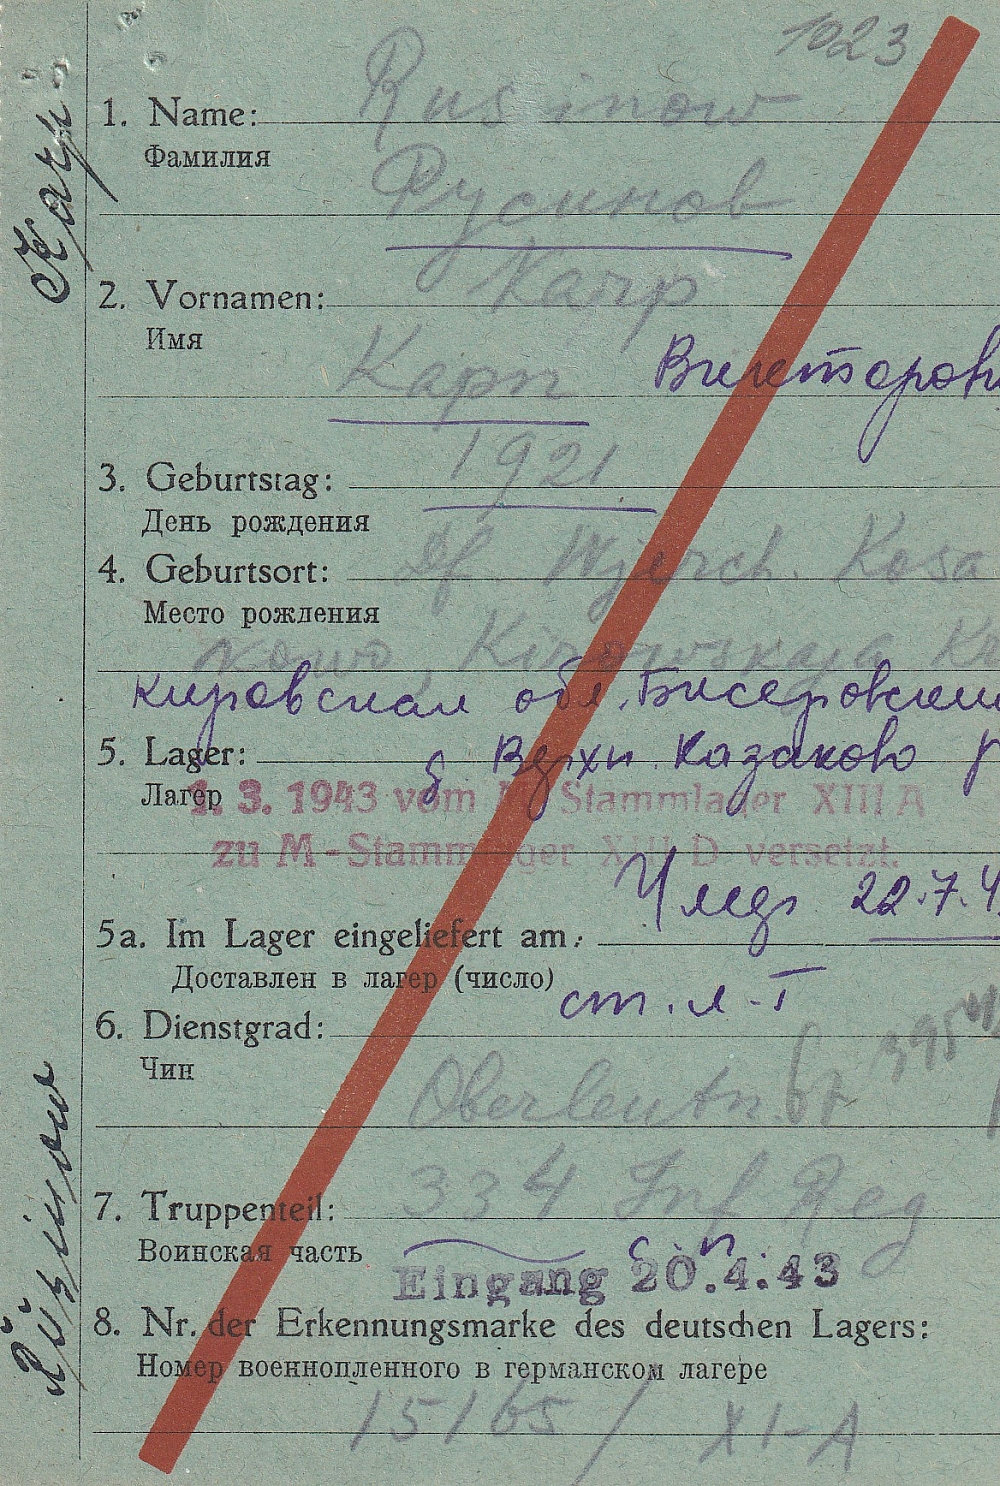 1023
1. Name: Rusinow
Фамилия
Русинов
2. Vornamen: Karp
Имя
Карп Викторов
3. Geburtstag: 1921
День рождения
4. Geburtsort: Df. Wjerch. Kosa
Место рождения
kowo, Kirowskaja
Кировская обл. Бисеровский
5. Lager: д Верхн. Казаково р
Лагер
1. 3. 1943 vom M Stammlager XIII A
zu M-Stammlager XIII D versetzt.
22.7.4
5a. Im Lager eingeliefert am:
Доставлен в лагер (число)
ст. л-т
6. Dienstgrad:
395
Чин
Oberleutn.
7. Truppenteil: 334 Inf Reg
Воинская часть
с. п.
Eingang 20.4.43
8. Nr. der Erkennungsmarke des deutschen Lagers:
Номер военнопленного в германском лагере
15165 / XI-A
Karp
Rusinow